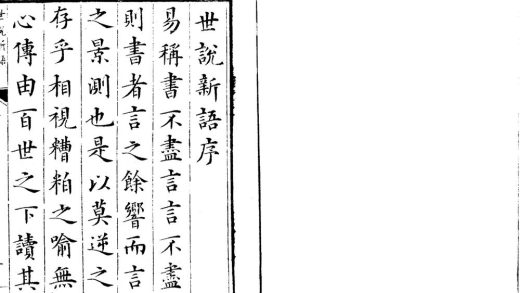 世說新語序
易稱書不盡言言不盡
則書者言之餘響而言
之景測也是以莫逆之
存乎相視糟粕之喻無
心傳由百世之下讀其
世說新語